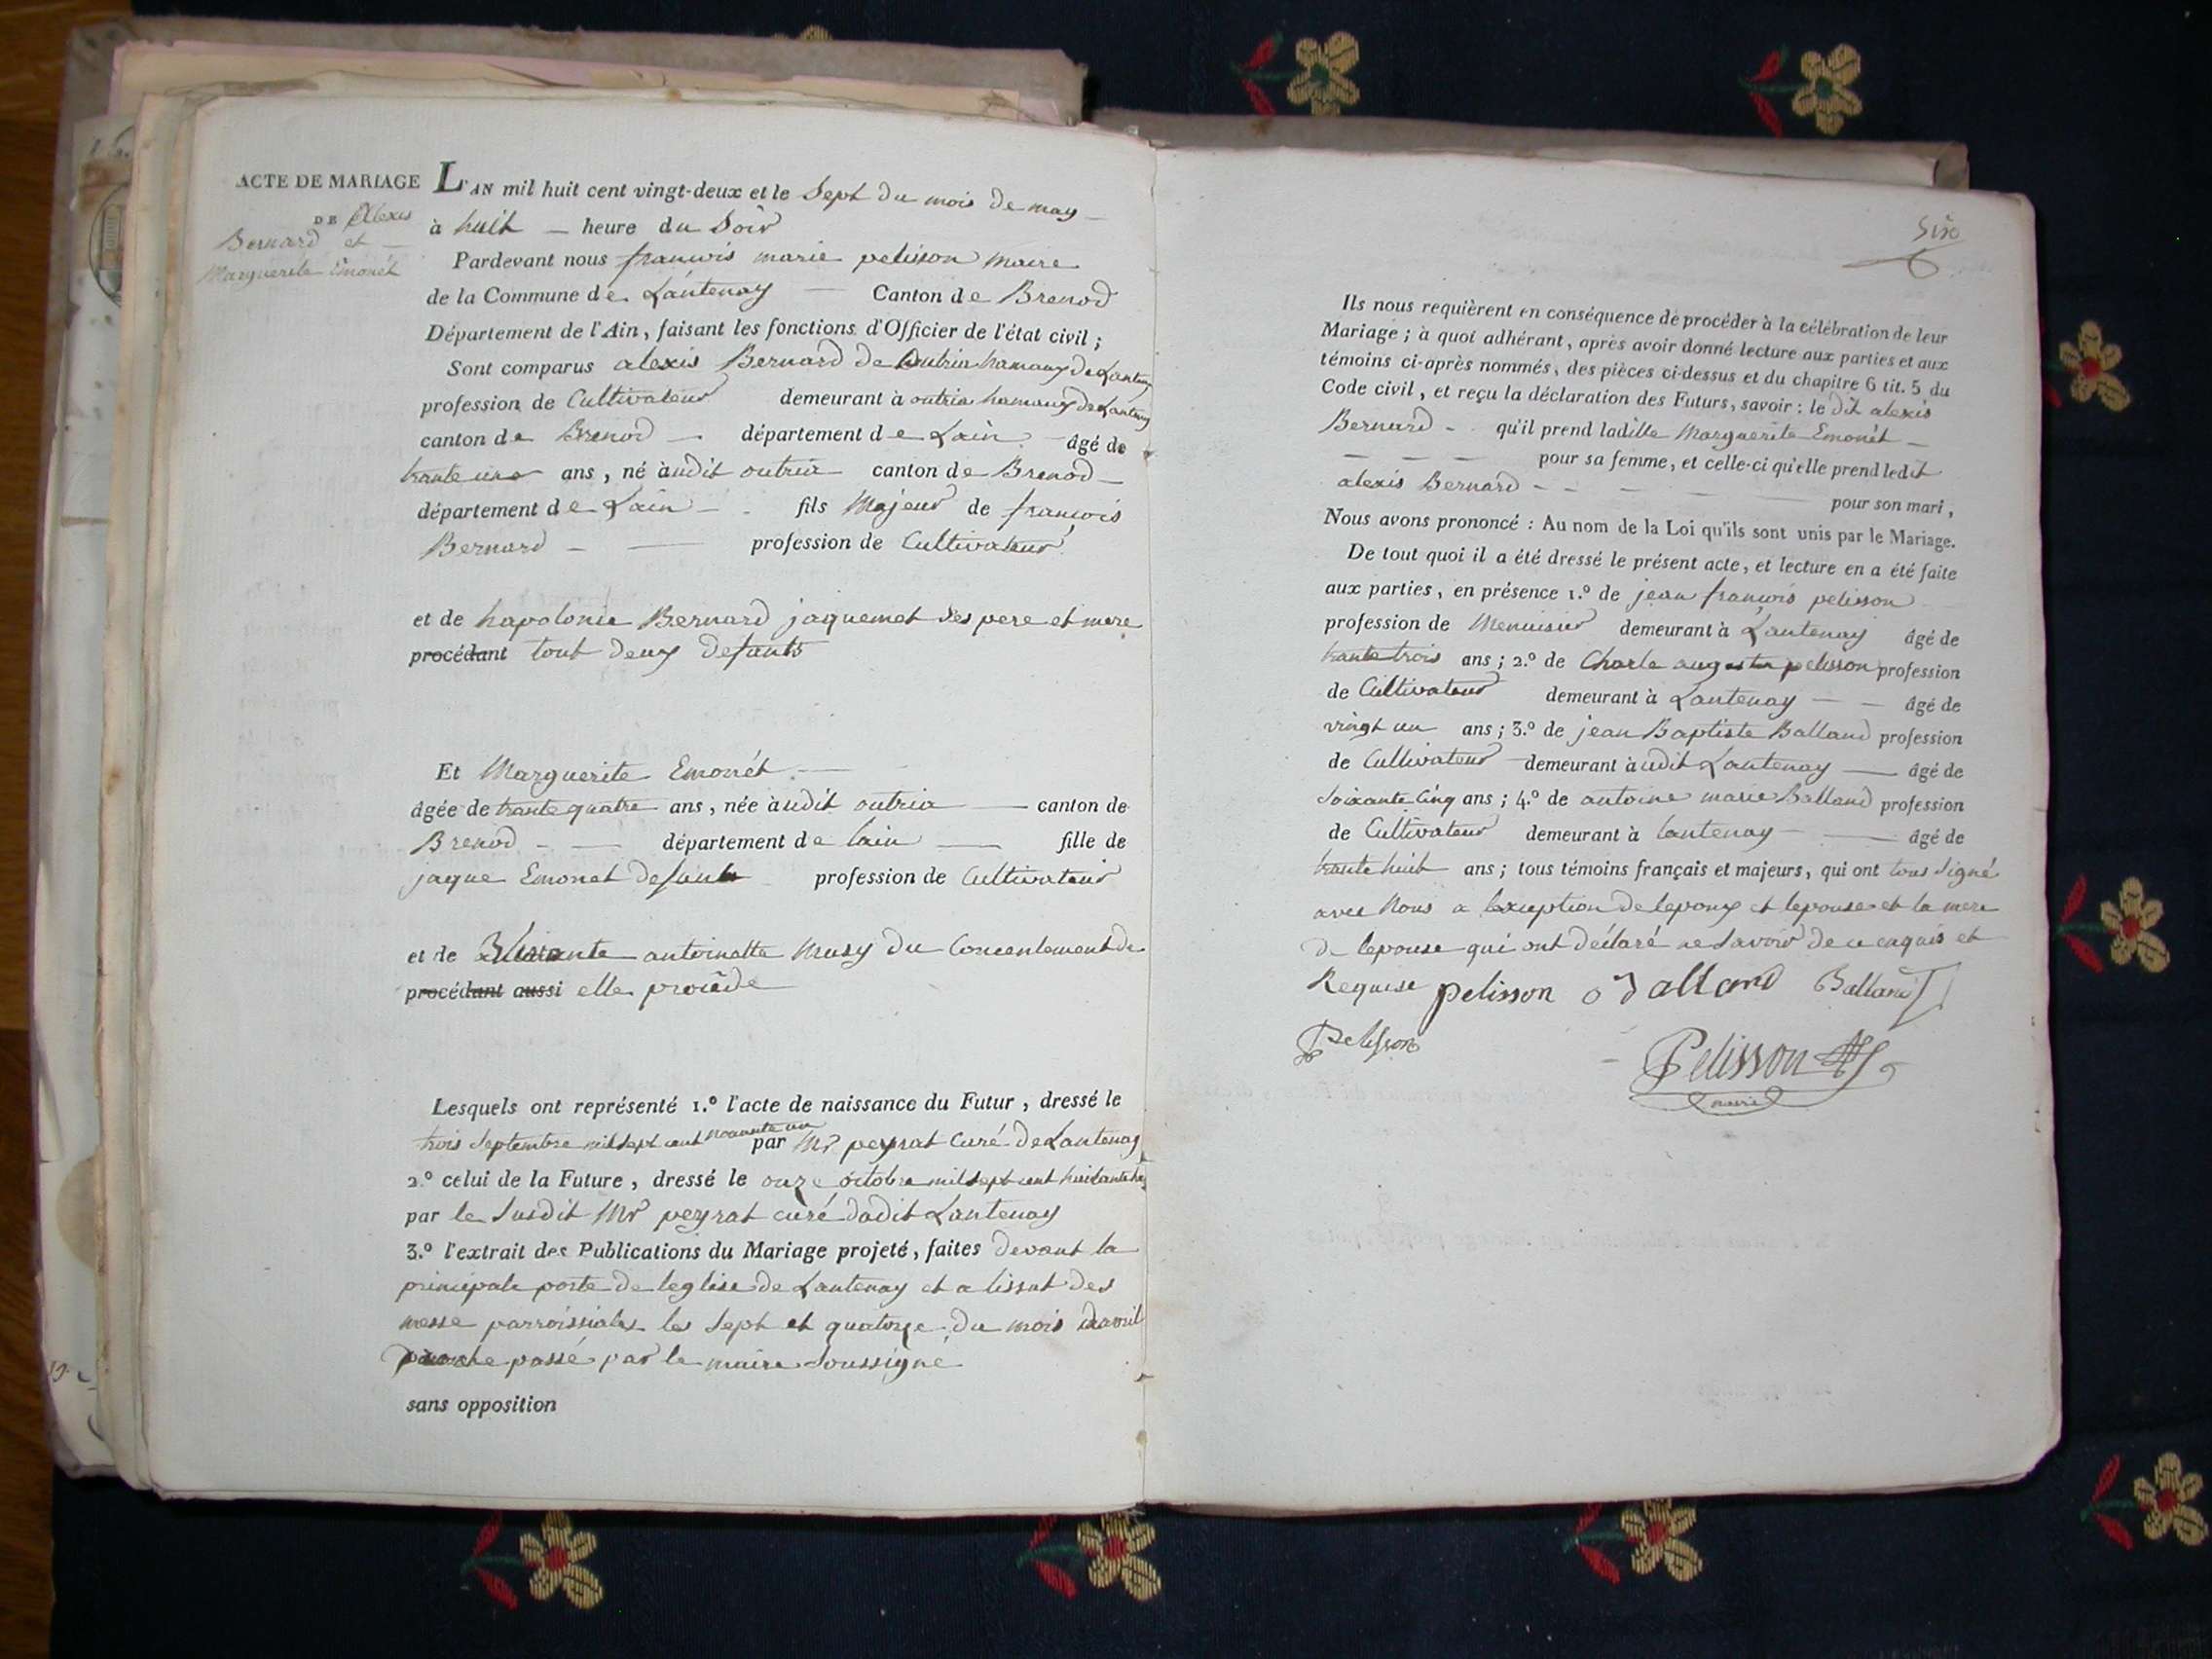 ACTE DE MARIAGE
DE Alexis
Bernard et
Marguerite Emonét
L'AN mil huit cent vingt-deux et le Sept du mois de may
à huit heure du Soir
Pardevant nous francois marie pelisson maire
de la Commune de Lantenay Canton de Brenod
Département de l'Ain, faisant les fonctions d'Officier de l'état civil ;
Sont comparus alexis Bernard de outria hamaux de Lantenay
profession de Cultivateur demeurant à outria hamaux de Lantenay
canton de Brenod département de Lain âgé de
trante une ans, né àudit outria canton de Brenod
département de Lain fils Majeur de francois
Bernard profession de Cultivateur
et de hapolonie Bernard jaquemet ses pere et mere
procédant tout deux defunts
Et Marguerite Emonét
âgée de trante quatre ans, née àudit outria canton de
Brenod département de lain fille de
jaque Emonet defunt profession de Cultivateur
et de antoinette Musy du Concentement de
procédant aussi elle procède
Lesquels ont représenté 1.º l'acte de naissance du Futur, dressé le
trois Septembre mil sept cent novante un par Mr peyrat Curé de Lantenay
2.º celui de la Future, dressé le onze octobre mil sept cent huitante
par le Susdit Mr peyrat curé dudit Lantenay
3.º l'extrait des Publications du Mariage projeté, faites devant la
principale porte de leglise de Lantenay et a lissut des
messe parroissiales les Sept et quatorze du mois davril
passé par le maire Soussigné
sans opposition
Six
Ils nous requièrent en conséquence de procéder à la célébration de leur
Mariage ; à quoi adhérant, après avoir donné lecture aux parties et aux
témoins ci-après nommés, des pièces ci-dessus et du chapitre 6 tit. 5 du
Code civil, et reçu la déclaration des Futurs, savoir : le dit alexis
Bernard qu'il prend ladille Marguerite Emonét
pour sa femme, et celle-ci qu'elle prend ledit
alexis Bernard
pour son mari,
Nous avons prononcé : Au nom de la Loi qu'ils sont unis par le Mariage.
De tout quoi il a été dressé le présent acte, et lecture en a été faite
aux parties, en présence 1.º de jean francois pelisson
profession de Menuisier demeurant à Lantenay âgé de
trante trois ans ; 2.º de Charle augustin pelisson profession
de Cultivateur demeurant à Lantenay âgé de
vingt un ans ; 3.º de jean Baptiste Balland profession
de Cultivateur demeurant àudit Lantenay âgé de
Soixante Cinq ans ; 4.º de antoine marie Balland profession
de Cultivateur demeurant à lantenay âgé de
trante huit ans ; tous témoins français et majeurs, qui ont tous Signé
avec Nous a lexception de lepoux et lepouse et la mere
de lepouse qui ont déclaré ne Savoir de ce enquis et
Requise pelisson Balland
Pelisson
Pelisson
maire